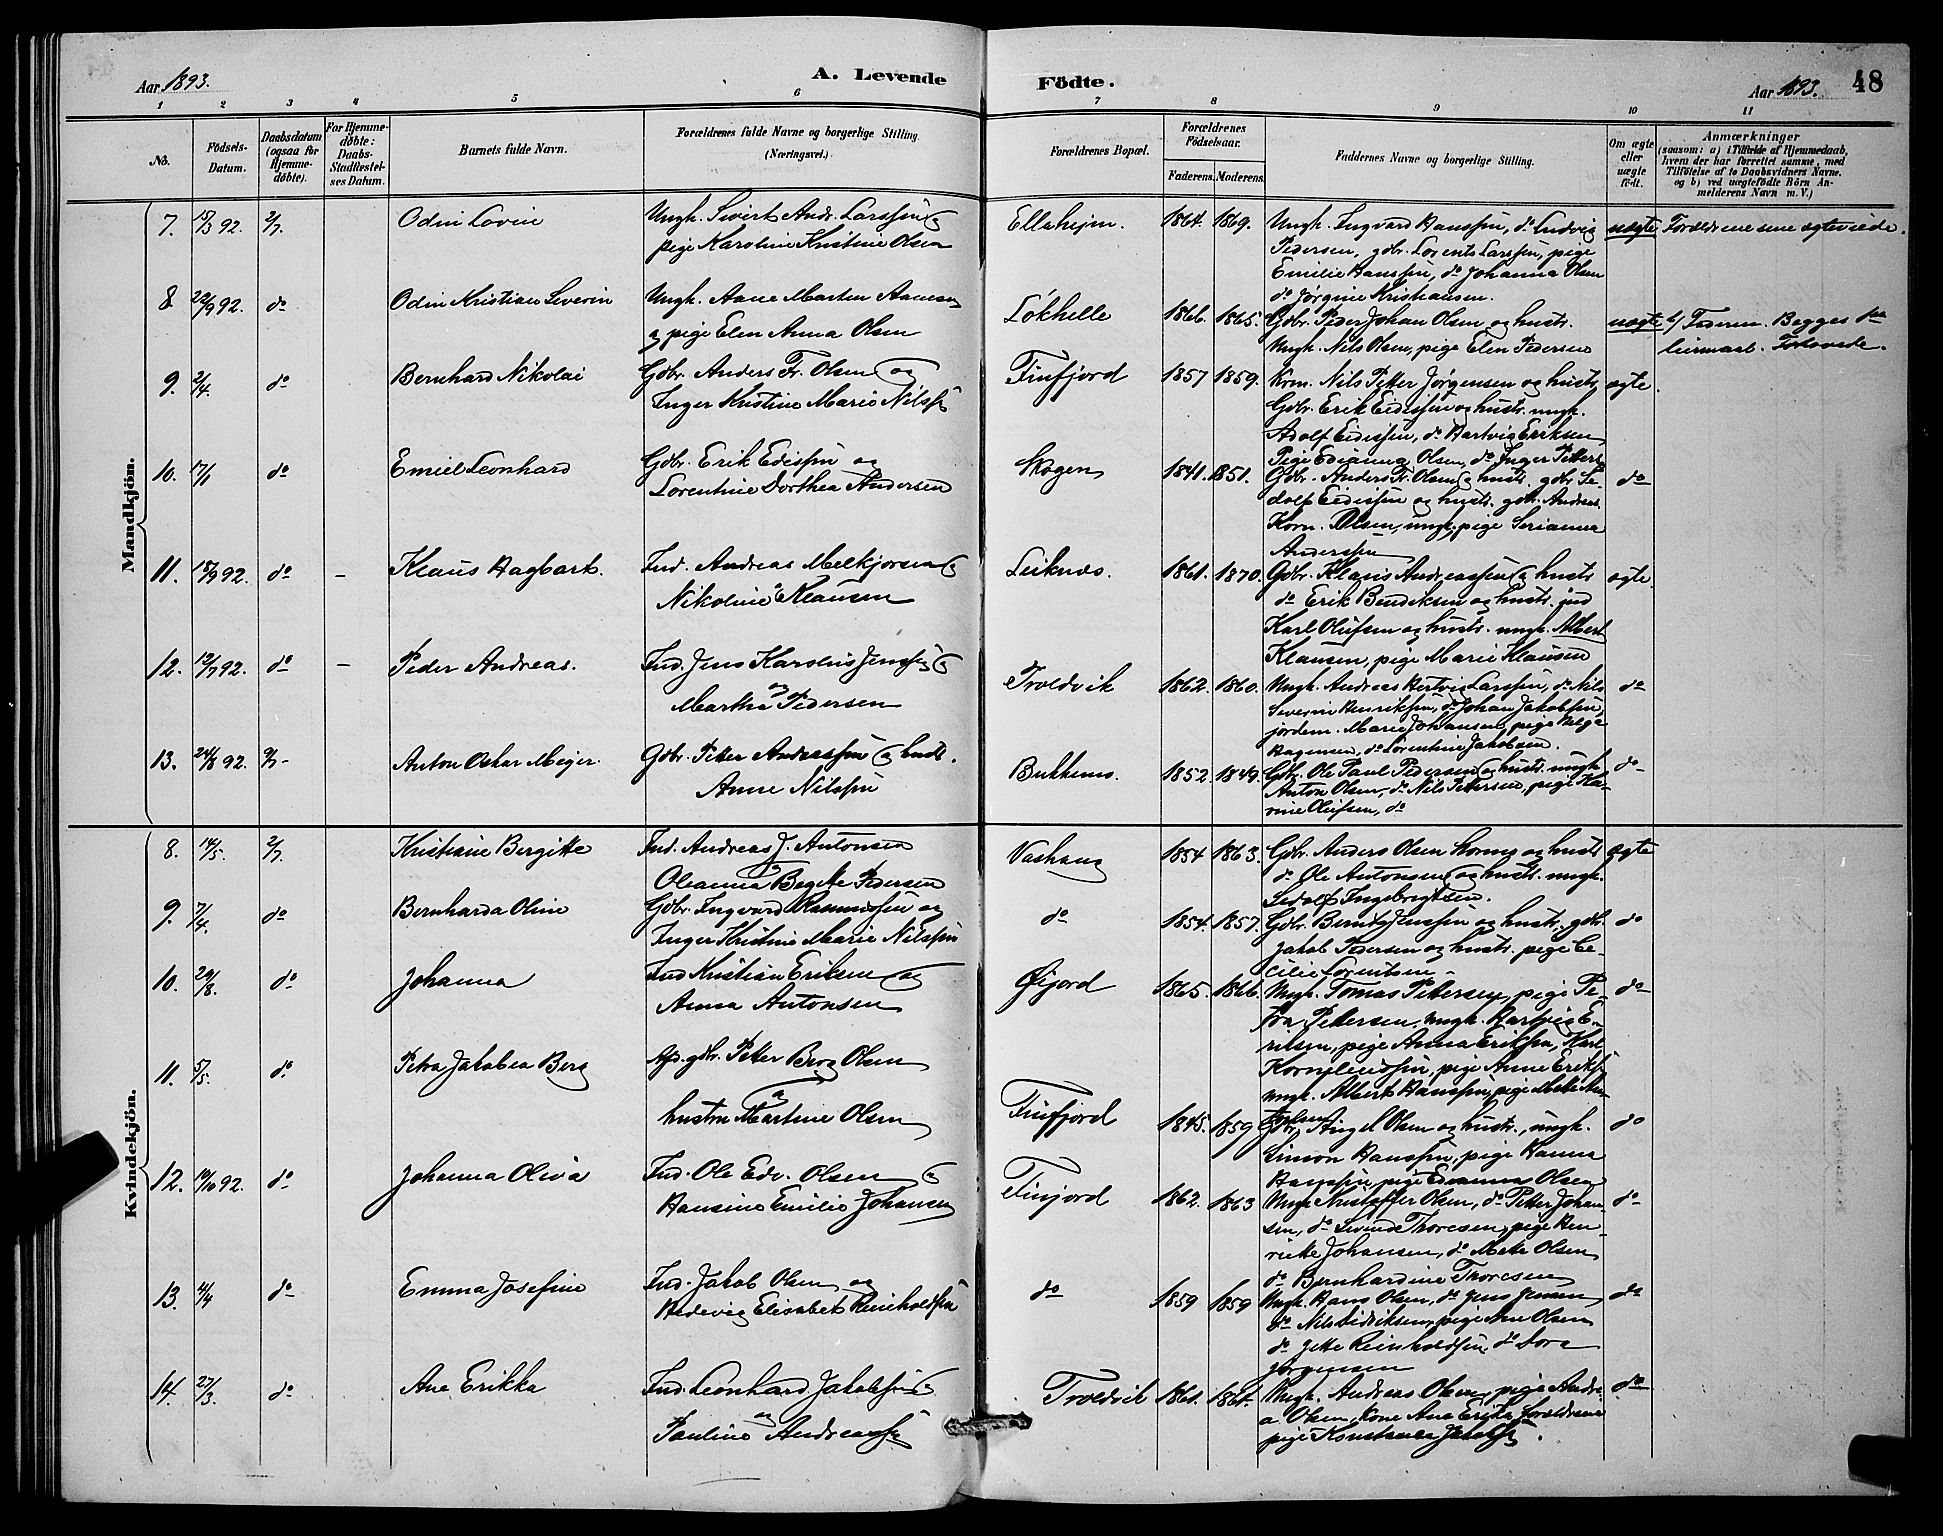 Aar 1893.
A. Levende
Födte.
Aar 1893.
48
1 2 3 4 5 6 7 8 9 10 11
No.
Födsels-Datum.
Daabsdatum (ogsaa for Hjemme-döbte).
For Hjemme-döbte: Daabs-Stadfæstel-ses Datum.
Barnets fulde Navn.
Forældrenes fulde Navne og borgerlige Stilling. (Næringsvei.)
Forældrenes Bopæl.
Forældrenes Födselsaar.
Faderens. Moderens.
Faddernes Navne og borgerlige Stilling.
Om ægte eller uægte födt.
Anmærkninger
(saasom: a) i Tilfælde af Hjemmedaab, hvem der har forrettet samme, med Tilföielse af to Daabsvidners Navne. og b) ved uægtefödte Börn An-melderens Navn m. V.)
Mandkjön.
7. 15/3 92. 2/7 Odin Lovin
Ungk. Sivert Andr. Larssen og
pige Karoline Kristine Olsen
Ellahejm. 1864. 1869.
Ungk. Ingvard Hanssen, do Ludvig
Pedersen, gdbr. Lorents Larssen, pige
Emilie Hanssen, do Johanna Olsen
do Jørgine Kristiansen.
uægte Forældrene sene ægteviede.
8. 22/9 92. do Odin Kristian Severin
Ungk. Aane Marten Aanesen
og pige Elen Anna Olsen
Løkhelle 1866. 1865.
Gdbr. Peder Johan Olsen og hustr.
Ungk. Nils Olsen, pige Elen Pedersen
uægte b) Faderen. Begges 1ste
leiermaal. Forlovede.
9. 2/4. do Bernhard Nikolai
Gdbr. Anders Fr. Olsen og
Inger Kristine Marie Nilss.
Finfjord 1857 1859.
Krm. Nils Petter Jørgensen og hustr.
Gdbr. Erik Eidissen og hustr. ungk.
Adolf Eidissen, do Hartvig Eriksen,
Pige Edianna Olsen, do Inger Petters.
ægte.
10. 17/1 do Emiel Leonhard
Gdbr. Erik Edissen og
Lorentine Dorthea Andersen
Skogen 1841. 1851.
Gdbr. Anders Fr. Olsen og hustr. gdbr. Se-
dolf Eidissen og hustr. gdbr. Andreas
Korn. Olsen, ungk. pige Serianna
Anderssen
do
11. 18/9 92. do - Klaus Hagbart.
Ind. Andreas Melkjorsen og
Nikoline Klausen
Leiknes. 1861. 1870.
Gdbr. Klaus Andreassen og hustr
do Erik Bendiksen og hustr. ind
Karl Olufsen og hustr. ungk. Albert
Klausen, pige Marie Klausen
ægte.
12. 12/7 92. do - Peder Andreas.
Ind. Jens Karolius Jenssen
og
Martha Pedersen
Troldvik 1862. 1860.
Ungk. Andreas Hertvig Larssen, do Nils
Severin Henriksen, do Johan Jakobsen,
jordem. Marie Johansen, pige Helga
Hagensen, do Lorentine Jakobsen.
do
13. 24/8 92. 9/7 - Anton Oskar Meyer.
Gdbr. Petter Andreassen og hustr.
Anne Nilssen
Bukkenes. 1852. 1849.
Gdbr. Ole Paul Pedersen og hustr. ungk.
Anton Olsen, do Nils Pettersen, pige Ka-
rine Olufsen, do
do
Kvindekjön.
8. 14/5. 2/7 Kristiane Bergitte
Ind. Andreas J. Antonsen
Oleanna Begitte Pedersen
Vashaug 1854 1863.
Gdbr. Anders Olsen Kornes og hustr
do Ole Antonsen og hustr. ungk.
Sedolf Ingebrigtsen.
ægte
9. 7/4. do Bernharda Oline
Gdbr. Ingvard Rasmussen og
Inger Kristine Marie Nilssen
do 1854. 1857.
Gdbr. Bernt Jenssen og hustr. gdbr.
Jakob Pedersen og hustr. pige Ce-
cilie Lorentsen.
do
10. 29/8. do Johanna
Ind Kristian Eriksen og
Anna Antonsen
Øijord 1865. 1866.
Ungk. Tomas Pettersen, pige Pe-
tra Pettersen, ungk. Hartvig E-
riksen, pige Anna Eriksen, Karl
Korneliussen, pige Anne Eriks.
ungk. Albert Hanssen, pige Mette
do
11. 5/5. do Petra Jakobea Berg
Afd. gdbr. Petter Berg Olsen
og
hustru Martine Olsen
Finfjord 1845. 1859
Gdbr. Angel Olsen og hustr., ungk.
Simon Hanssen, pige Hanna
Hanssen, pige Edianna Olsen
do
12. 19/10 92. do Johanna Oliva
Ind. Ole Edv. Olsen og
Hansine Emilie Johansen
Finjord 1862. 1863
Ungk. Kristoffer Olsen, do Petter Johan-
sen, do Sevrind Thoresen, pige Hen-
rikke Johansen, do Mette Olsen
do Bernhardine Thoresen
do
13. 4/4 do Emma Josefine
Ind. Jakob Olsen og
Hedevig Elisabet Reinholdsen
do 1859 1859
Ungk. Hans Olsen, do Jens Jensen
do Nils Didriksen, pige Ane Olsen
do Jette Reinholdsen, do Dora
Jørgensen
do
14. 27/3. do Ane Erikka
Ind. Leonhard Jakobsen
og
Pauline Andreass.
Troldvik 1861. 1864.
Ungk. Andreas Olsen, pige Andre-
a Olsen, kone Ane Erika, forældrene
pige Konstanse Jakobs.
do